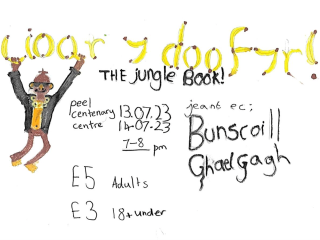 Lioar y doofyr!
THE jungle BOOK!
peel
centenary
centre
13.07.23
14-07-23
7-8 pm
jeant ec;
Bunscoill
Ghaelgagh
£5 Adults
£3 18+under